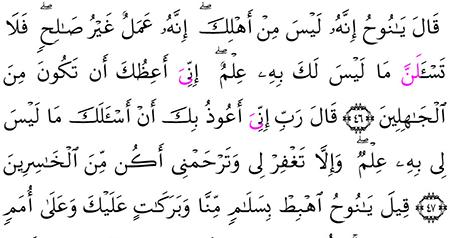 قَالَ يَـٰنُوحُ إِنَّهُۥ لَيْسَ مِنْ أَهْلِكَ ۖ إِنَّهُۥ عَمَلٌ غَيْرُ صَـٰلِحٍ ۖ فَلَا
تَسْـَٔلَنَّ مَا لَيْسَ لَكَ بِهِۦ عِلْمٌ ۖ إِنِّىَ أَعِظُكَ أَن تَكُونَ مِنَ
ٱلْجَـٰهِلِينَ ﴿٤٦﴾ قَالَ رَبِّ إِنِّىَ أَعُوذُ بِكَ أَنْ أَسْـَٔلَكَ مَا لَيْسَ
لِى بِهِۦ عِلْمٌ ۖ وَإِلَّا تَغْفِرْ لِى وَتَرْحَمْنِى أَكُن مِّنَ ٱلْخَـٰسِرِينَ
﴿٤٧﴾ قِيلَ يَـٰنُوحُ ٱهْبِطْ بِسَلَـٰمٍ مِّنَّا وَبَرَكَـٰتٍ عَلَيْكَ وَعَلَىٰٓ أُمَمٍ